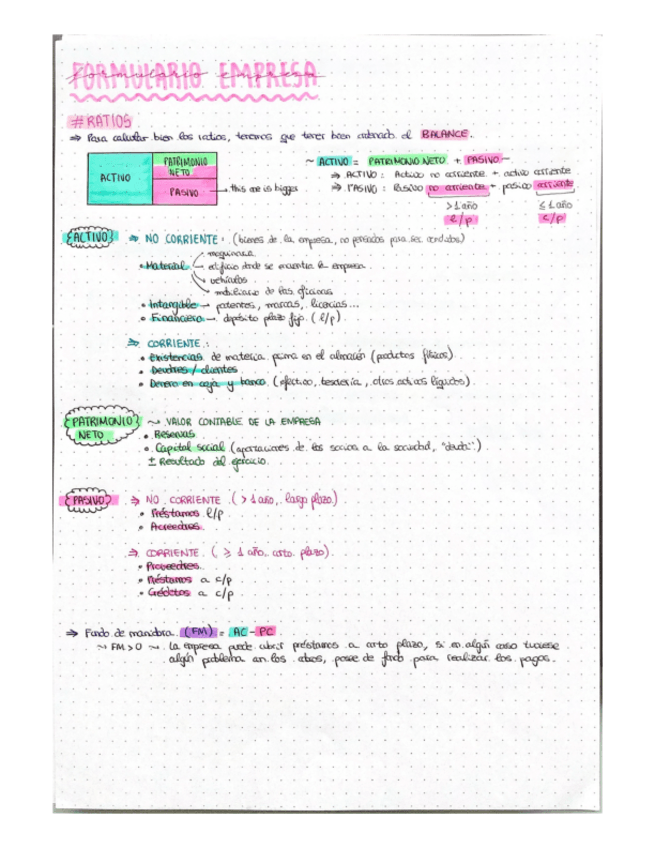 FORMULARIO EMPRESA
#RATIOS
⇒ Para calcular bien los ratios, tenemos que tener bien ordenado el BALANCE.
ACTIVO
PATRIMONIO NETO
PASIVO → this one is bigger
~ ACTIVO = PATRIMONIO NETO + PASIVO ~
⇒ ACTIVO: Activo no corriente + activo corriente
⇒ PASIVO: Pasivo no corriente + pasivo corriente
>1 año
≤ 1 año
l/p
c/p
{ACTIVO} ⇒ NO CORRIENTE: (bienes de la empresa, no pensados para ser vendidos)
• Material
maquinaria
edificio donde se encuentra la empresa
vehículos
mobiliario de las oficinas
• Intangible → patentes, marcas, licencias...
• Financiero → depósito plazo fijo (l/p)
⇒ CORRIENTE:
• Existencias de materia prima en el almacén (productos físicos)
• Deudores / clientes
• Dinero en caja y banco (efectivo, tesorería, otros activos líquidos)
{PATRIMONIO NETO} ~ VALOR CONTABLE DE LA EMPRESA
• Reservas
• Capital social (aportaciones de los socios a la sociedad, "deuda")
± Resultado del ejercicio
{PASIVO} ⇒ NO CORRIENTE (>1 año, largo plazo)
• Préstamos l/p
• Acreedores
⇒ CORRIENTE (≥ 1 año, corto plazo)
• Proveedores
• Préstamos a c/p
• Créditos a c/p
⇒ Fondo de maniobra (FM) = AC - PC
~ FM>0 ~ La empresa puede cubrir préstamos a corto plazo, si en algún caso tuviese
algún problema con los cobros, posee de fondo para realizar los pagos.